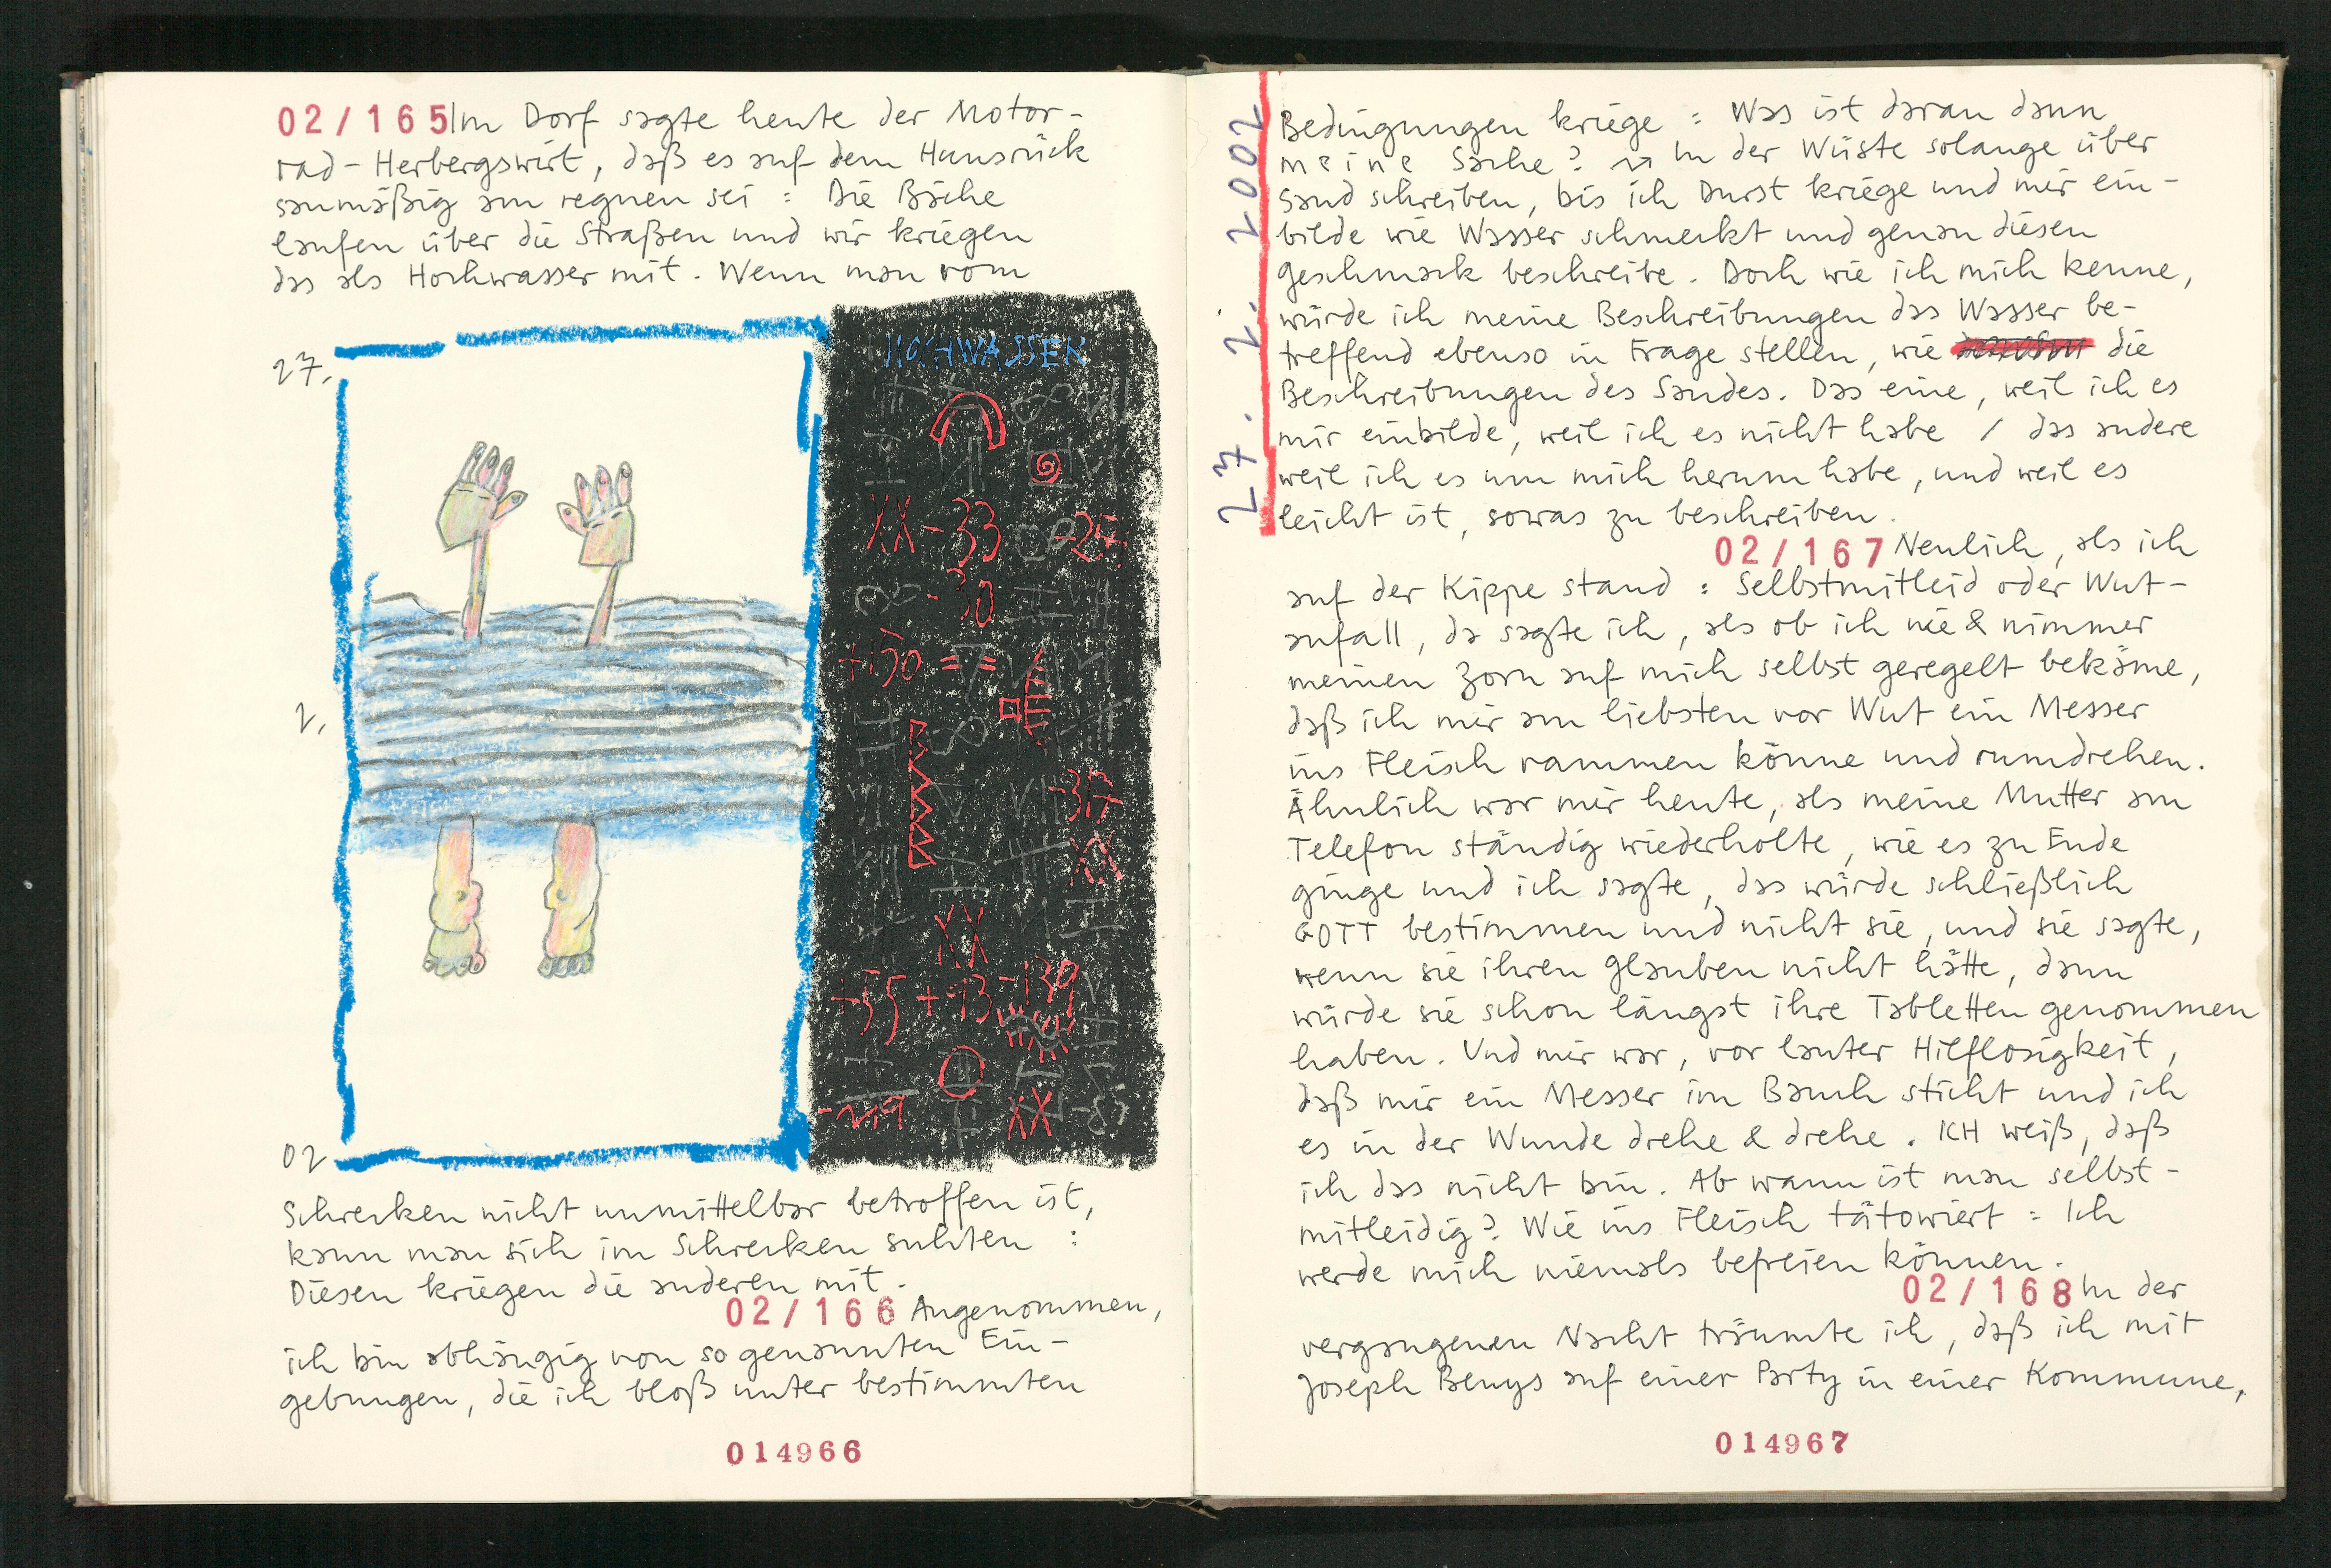 02/165 Im Dorf sagte heute der Motor-
rad-Herbergswirt, daß es auf dem Hunsrück
saumäßig am regnen sei : Die Bäche
laufen über die Straßen und wir kriegen
das als Hochwasser mit. Wenn man vom
27.
2.
02
HOCHWASSER
XX-33
-27
-30
+130 =
-37
XX
XX
+55+93-139
-29
XX
Schrecken nicht unmittelbar betroffen ist,
kann man sich im Schrecken suhlen :
Diesen kriegen die anderen mit.
02/166 Angenommen,
ich bin abhängig von so genannten Ein-
gebungen, die ich bloß unter bestimmten
014966
27. 2. 2002
Bedingungen kriege : Was ist daran dann
meine Sache? In der Wüste solange über
Sand schreiben, bis ich Durst kriege und mir ein-
bilde wie Wasser schmeckt und genau diesen
Geschmack beschreibe. Doch wie ich mich kenne,
würde ich meine Beschreibungen das Wasser be-
treffend ebenso in Frage stellen, wie die
Beschreibungen des Sandes. Das eine, weil ich es
mir einbilde, weil ich es nicht habe / das andere
weil ich es um mich herum habe, und weil es
leicht ist, sowas zu beschreiben.
02/167 Neulich, als ich
auf der Kippe stand : Selbstmitleid oder Wut-
anfall, da sagte ich, als ob ich nie & nimmer
meinen Zorn auf mich selbst geregelt bekäme,
daß ich mir am liebsten vor Wut ein Messer
ins Fleisch rammen könne und rumdrehen.
Ähnlich war mir heute, als meine Mutter am
Telefon ständig wiederholte, wie es zu Ende
ginge und ich sagte, das würde schließlich
GOTT bestimmen und nicht sie, und sie sagte,
wenn sie ihren Glauben nicht hätte, dann
würde sie schon längst ihre Tabletten genommen
haben. Und mir war, vor lauter Hilflosigkeit,
daß mir ein Messer im Bauch sticht und ich
es in der Wunde drehe & drehe. ICH weiß, daß
ich das nicht bin. Ab wann ist man selbst-
mitleidig? Wie ins Fleisch tätowiert : Ich
werde mich niemals befreien können.
02/168 In der
vergangenen Nacht träumte ich, daß ich mit
Joseph Beuys auf einer Party in einer Kommune,
014967